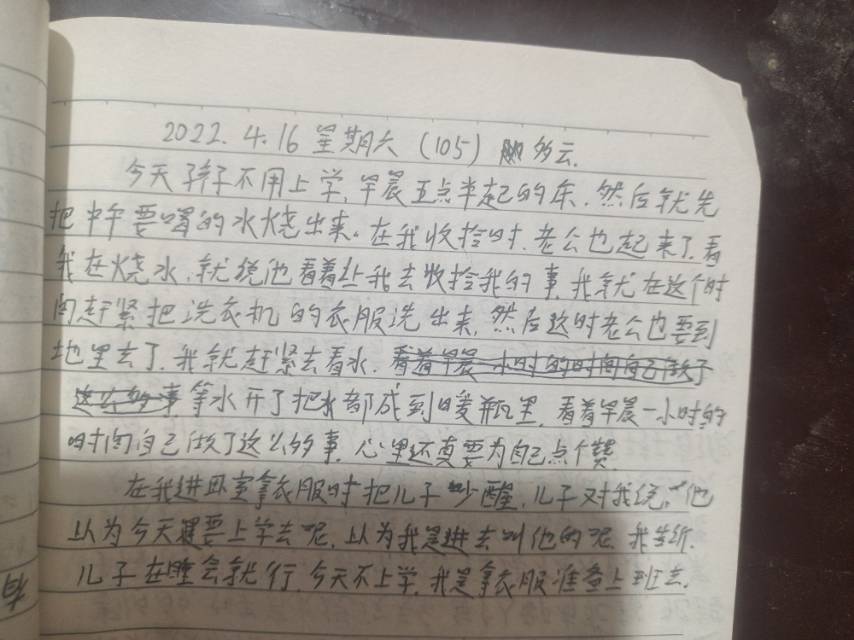 2022.4.16 星期六 (105) 多云.
今天孩子不用上学,早晨五点半起的床.然后就先
把中午要喝的水烧出来。在我收拾时.老公也起来了.看
我在烧水,就说他看着让我去收拾我的事.我就在这个时
间赶紧把洗衣机的衣服洗出来,然后这时老公也要到
地里去了.我就赶紧去看水.看着早晨一小时的时间自己做了
这么多事等水开了把水都成到暖瓶里.看着早晨一小时的
时间自己做了这么多事.心里还真要为自己点个赞
在我进卧室拿衣服时把儿子吵醒,儿子对我说:"他
以为今天还要上学去呢,以为我是进去叫他的呢.我告诉.
儿子在睡会就行.今天不上学.我是拿衣服准备上班去.